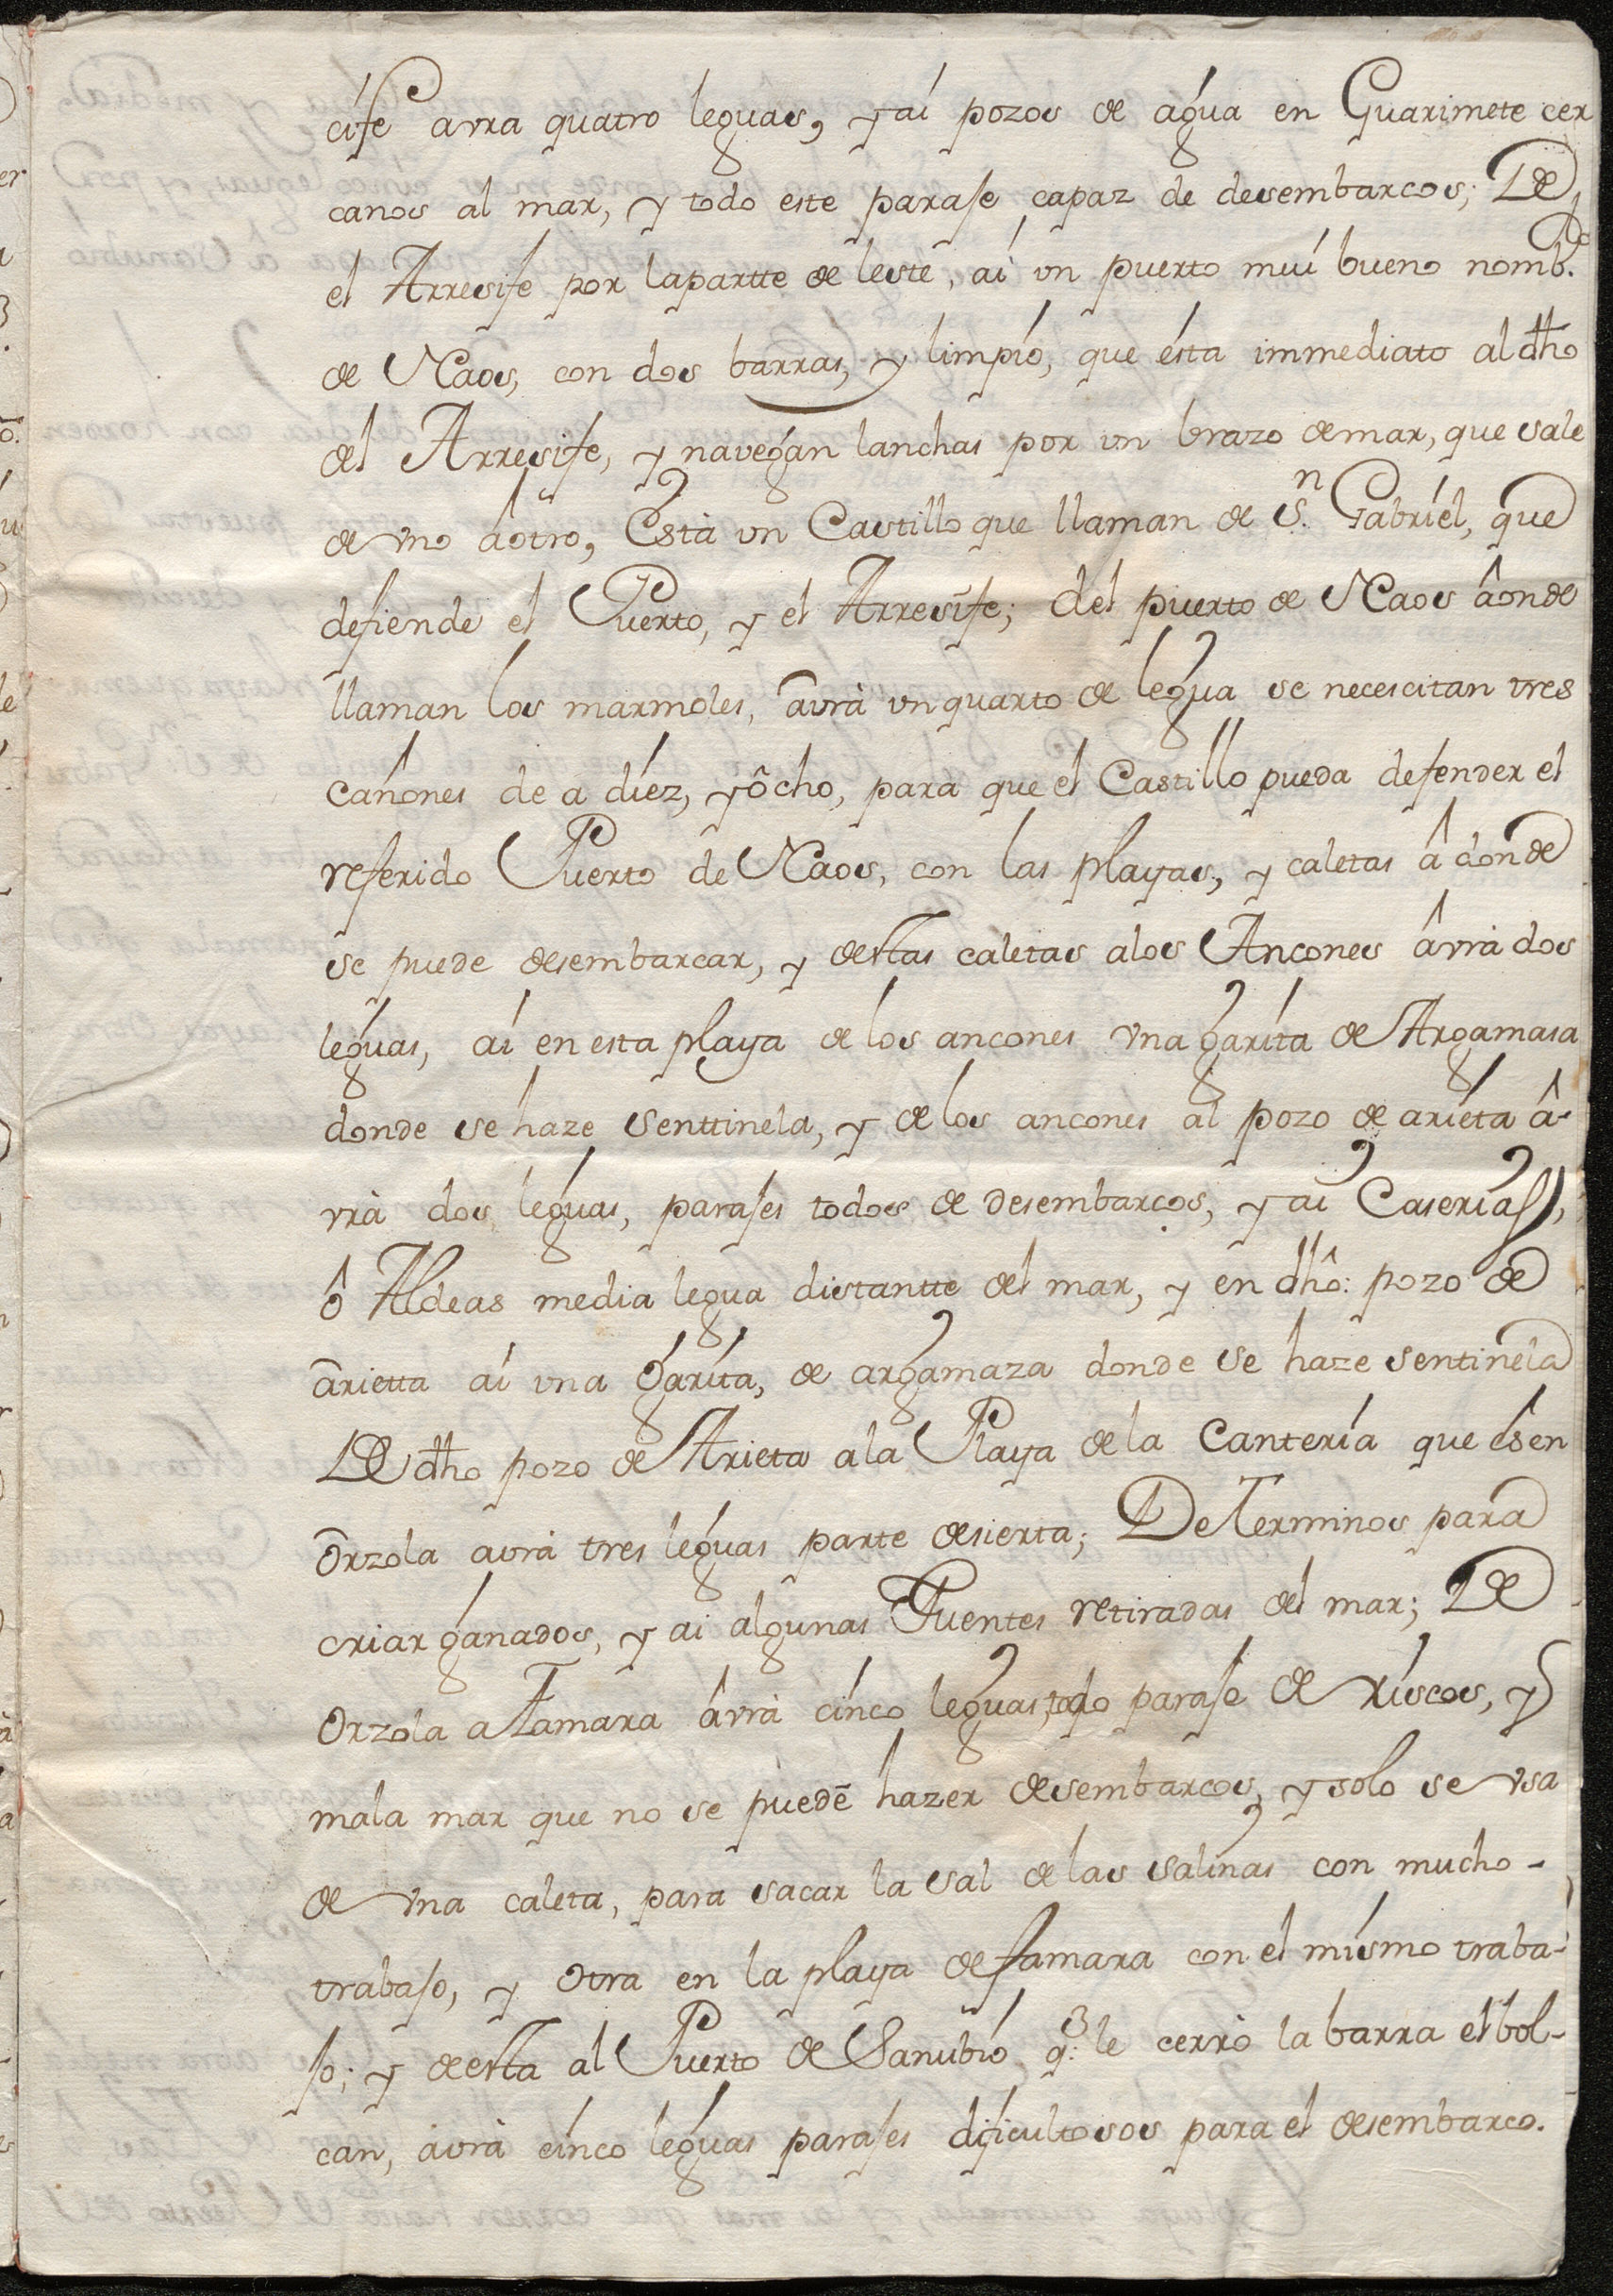 cife avra quatro leguas, y ai pozos de agua en Guarimete cer
canos al mar, y todo este paraje capaz de desembarcos; De
el Arresife por lapartte de leste, ai vn puerto mui bueno nomb.do
de Naos, con dos barras, y limpio, que ésta immediato al dho
del Arresife, y navegan lanchas por vn brazo demar, que sale
de vno âotro, Está vn Castillo que llaman de S.n Gabriel, que
defiende el Puerto, y el Arresife; del puerto de Naos âonde
llaman los marmoles, avrà vn quarto de legua se necescitan tres
cañones de a diez, y ôcho, para que el Castillo pueda defender el
referido Puerto de Naos, con las playas, y caletas â donde
se puede desembarcar, y destas caletas alos Ancones âvrà dos
leguas, ai en esta playa de los ancones vna garita de Argamasa
donde se haze senttinela, y de los ancones al pozo de arieta â-
vrà dos leguas, parajes todos de desembarcos, y ai Caserias,
ô Aldeas media legua distantte del mar, y en dhô: pozo de
arietta ai vna garita, de argamaza donde se haze sentinela
De dho pozo de Arieta ala Playa de la Cantería que ês en
Orzola avrà tres leguas parte desierta; De Terminos para
criar ganados, y ai algunas Fuentes retiradas del mar; De
Orzola a Famara âvrà cinco leguas, todo paraje de riscos, y
mala mar que no se puedē hazer desembarcos, y solo se vsa
de vna caleta, para sacar la sal de las salinas con mucho-
trabajo, y otra en la playa de famara con el mismo traba-
jo; y desta al Puerto de Janubio q.e le cerrò la barra el bol-
can, avrà cinco leguas parajes dificultosos para el desembarco.